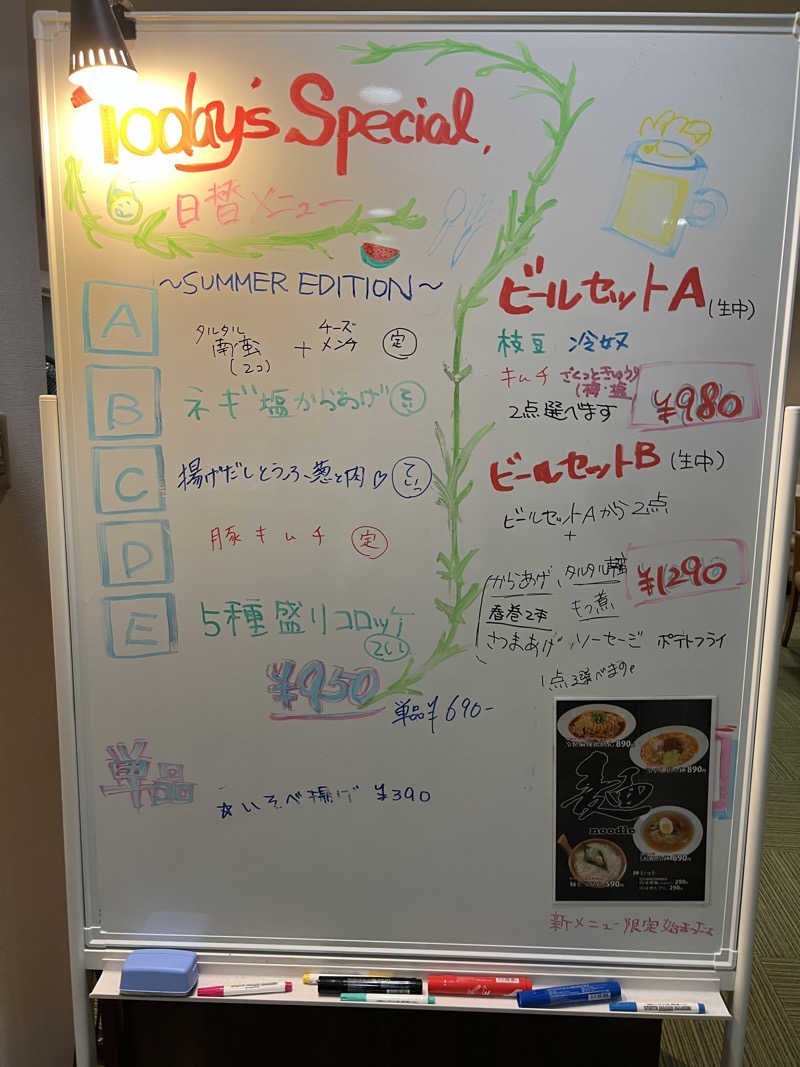 Today's Special.
日替メニュー
~SUMMER EDITION~
A タルタル南蛮(2コ) + チーズメンチ 定
B ネギ塩からあげ てい
C 揚げだしとうふ、葱と肉♡
D 豚キムチ 定
E 5種盛りコロッケ
¥950
単品¥690-
単品
☆いそべ揚げ ¥390
ビールセットA(生中)
枝豆 冷奴
キムチ ざくっときゅうり
(梅・塩
2点選べます
¥980
ビールセットB(生中)
ビールセットAから2点
+
¥1290
からあげ タルタル
春巻2本 もつ煮
さつまあげ ソーセージ ポテトフライ
1点選べます
890円
890円
麺
noodle
690円
590円
290円
290円
新メニュー限定